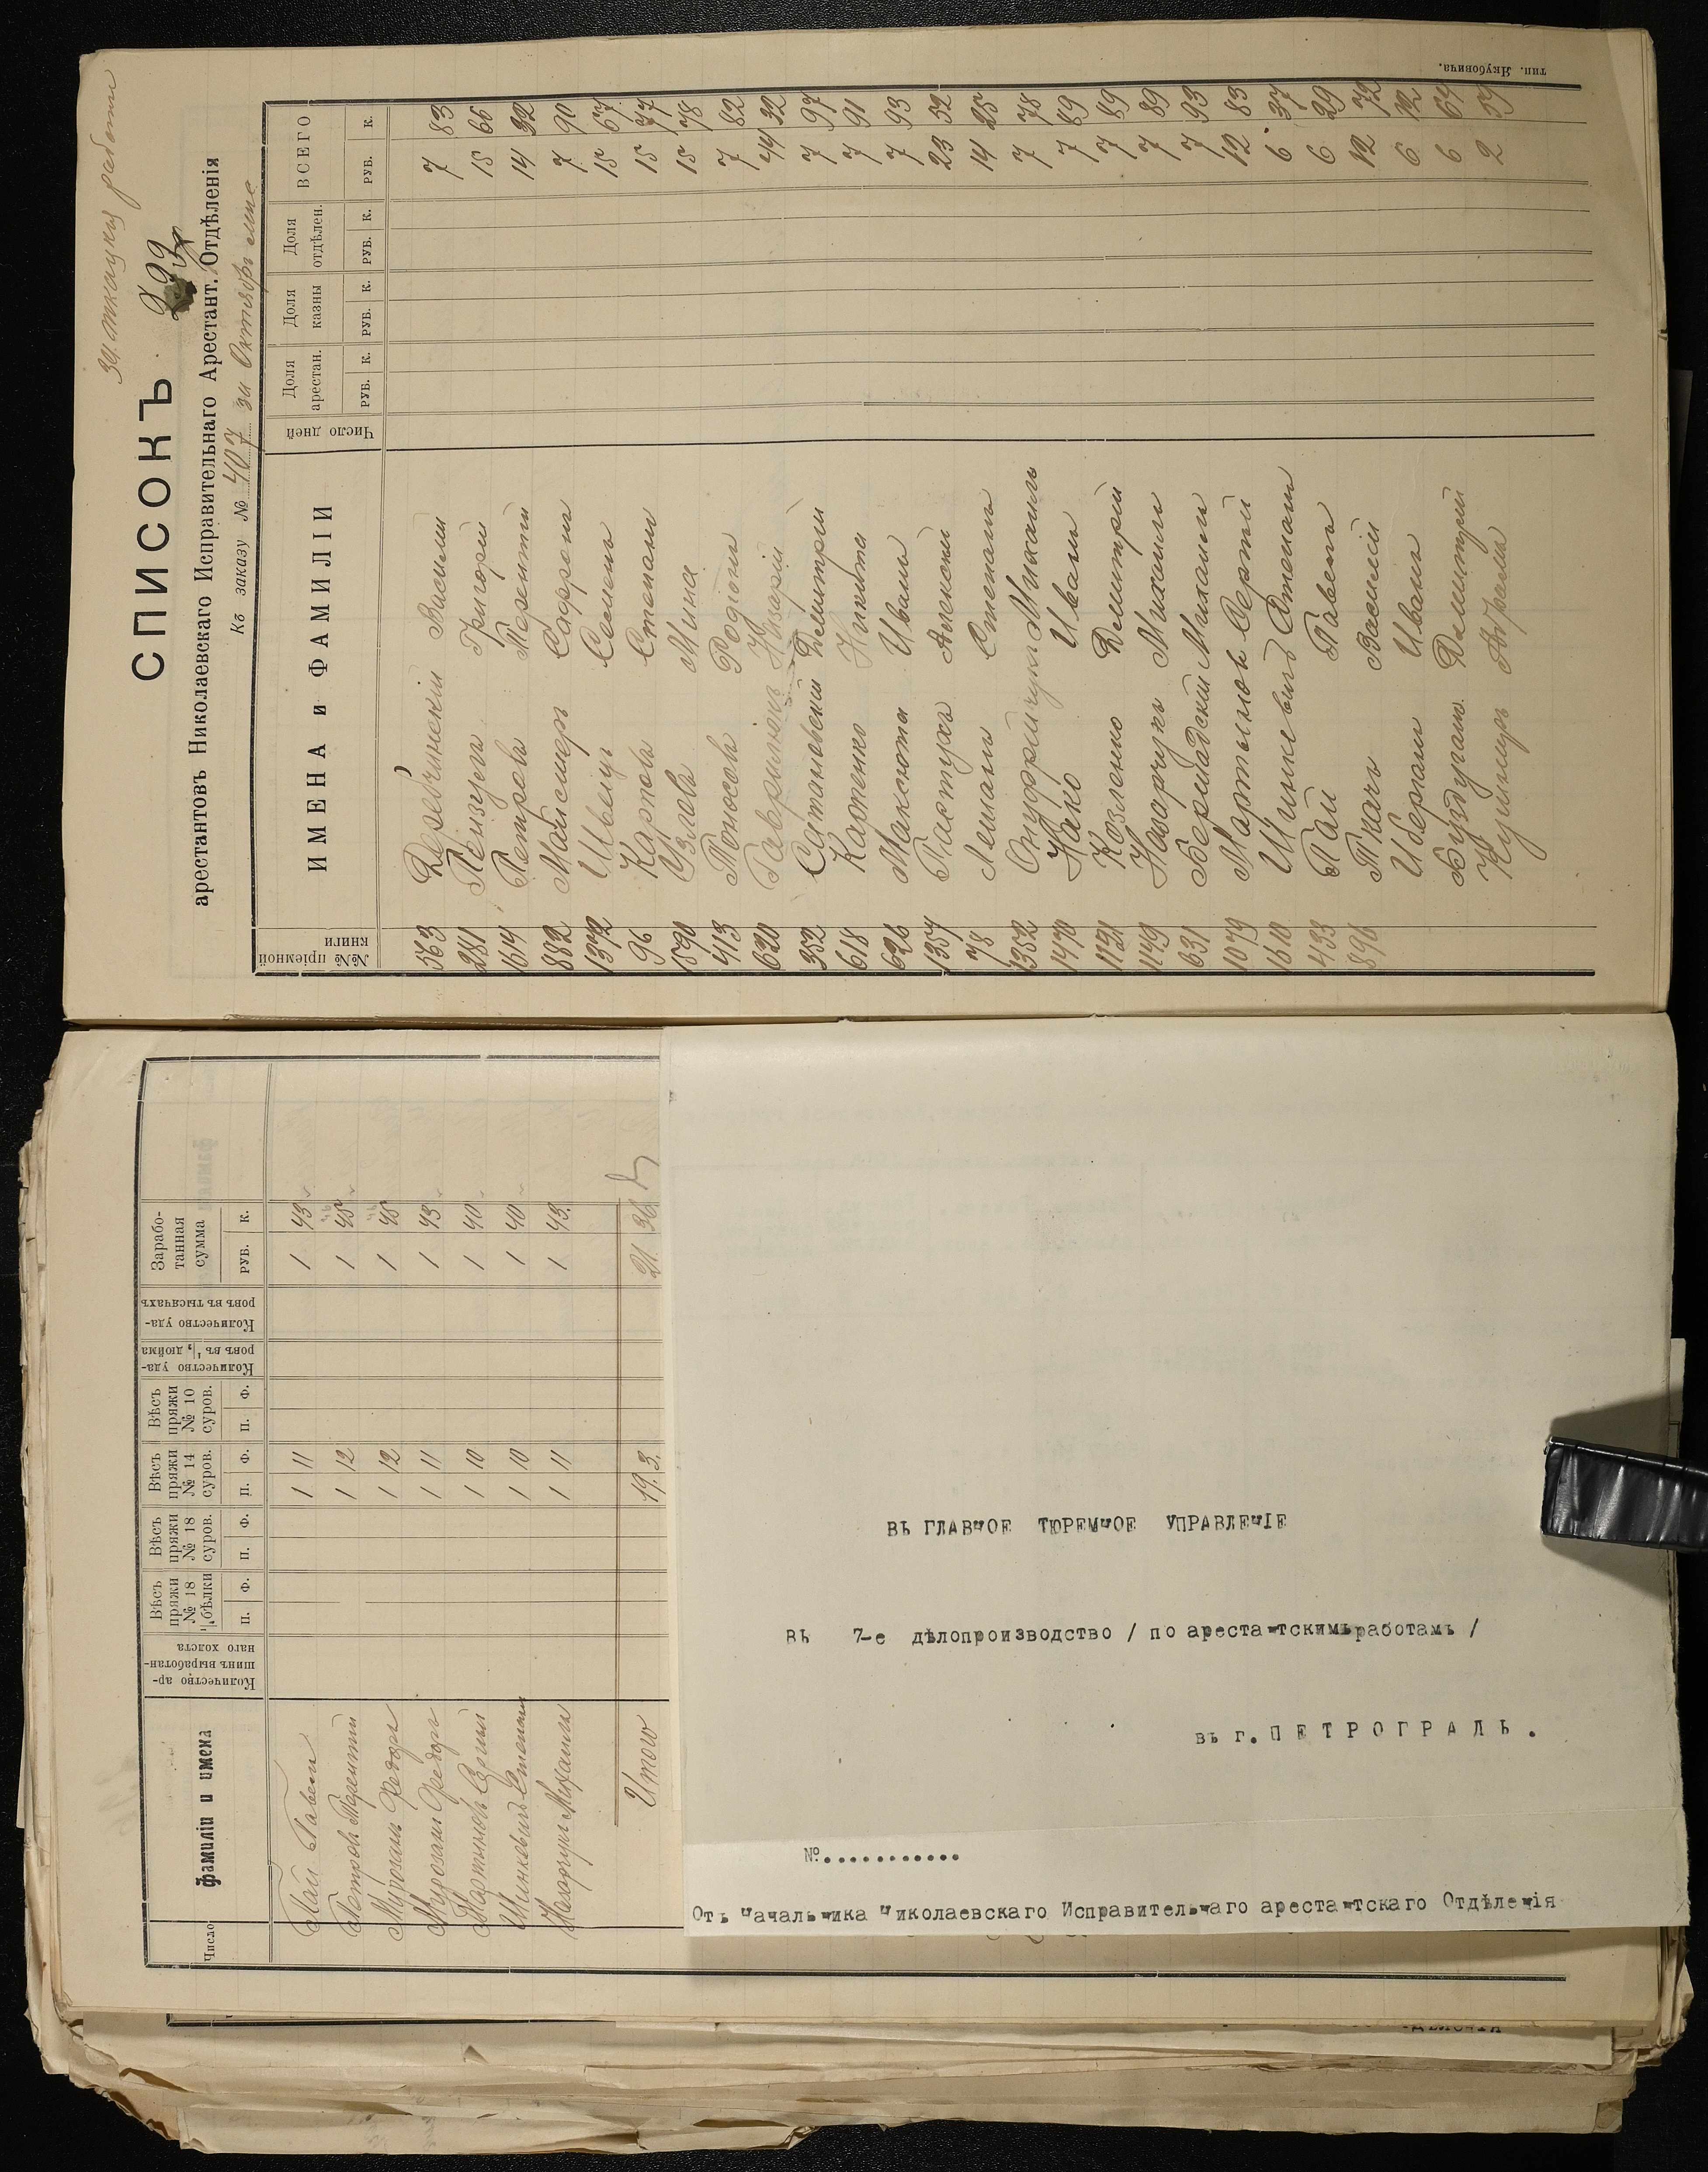 за ткацкія работы
СПИСОКЪ
293
арестантовъ Николаевскаго Исправительнаго Арестант. Отдѣленія
Къ заказу № 407 за Октябрь мѣс
№№ пріемной книги
ИМЕНА и ФАМИЛІИ
Число дней
Доля арестан. РУБ. К.
Доля казны РУБ. К.
Доля отдѣлен. РУБ. К.
ВСЕГО РУБ. К.
Василій 7 83
281 Григорій 15 66
1614 Петровъ Терентій 14 32
882 Майснеръ Софронъ 7 90
1372 Швецъ Семенъ 15 67
96 Карповъ Степанъ 15 77
Узловъ Мина 15 78
413 Тоносовъ Родіонъ 7 82
620 Назарій 44 32
352 Сатановскій Дмитрій 7 97
618 Карпенко Никита 7 91
626 Максюта Иванъ 7 93
1357 Пастухъ Алексѣй 23 52
78 Леманъ Степанъ 14 25
1352 Онуфрійчукъ Михаилъ 7 78
1470 Жако Иванъ 7 89
1121 Козленко Дмитрій 7 89
1149 Назарчукъ Михаилъ 7 89
631 Бершадскій Михаилъ 7 93
1079 Мартынюкъ Сергѣй 12 83
1610 Шинкевичъ Степанъ 6 37
433 Пай Павелъ 6 29
896 Ткачъ Василій 12 72
Иберганъ Иванъ 6 12
Буздуганъ Дмитрій 6 64
Кушниръ Абрамъ 2 59
тип. Якубовича.
Число
Фамиліи и имена
Количество аршинъ выработаннаго холста
Вѣсъ пряжи № 18 ½бѣлки П. Ф.
Вѣсъ пряжи № 18 суров. П. Ф.
Вѣсъ пряжи № 14 суров. П. Ф.
Вѣсъ пряжи № 10 суров. П. Ф.
Количество ударовъ въ ¼ дюйма
Количество ударовъ въ тысячахъ
Заработанная сумма РУБ. К.
Пай Павелъ 1 11 1 43
Петровъ Терентій 1 12 1 45
Мурозанъ Федоръ 1 12 1 45
Мурозанъ Федоръ 1 11 1 43
Мартынюкъ Сергѣй 1 10 1 40
Шинкевичъ Степанъ 1 10 1 40
Назарчукъ Михаилъ 1 11 1 43
Итого 19. 3. 21 36
ВЪ ГЛАВНОЕ ТЮРЕМНОЕ УПРАВЛЕНІЕ
ВЪ 7-е дѣлопроизводство / по арестантскимъ работамъ /
въ г. ПЕТРОГРАДЬ.
№............
Отъ Начальника Николаевскаго Исправительнаго арестантскаго Отдѣленія